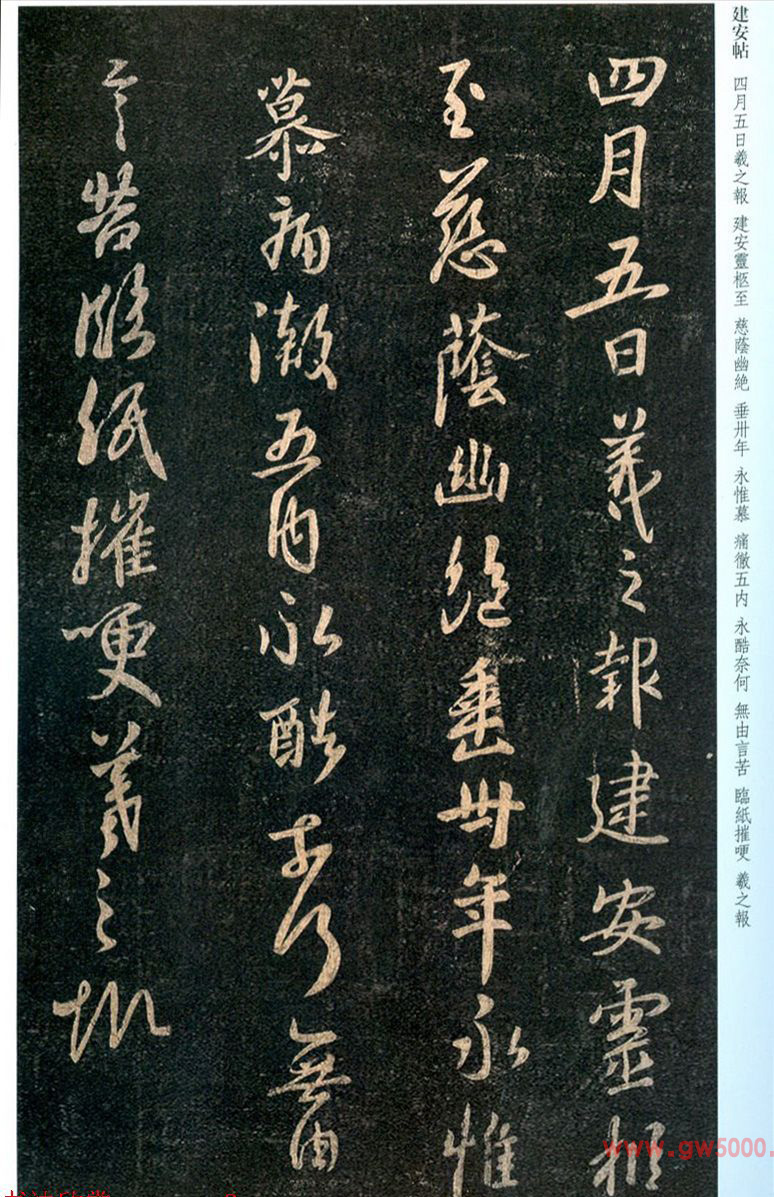 建安帖 四月五日羲之報 建安靈柩至 慈蔭幽絶 垂卅年 永惟慕 痛徹五内 永酷奈何 無由言苦 臨紙摧哽 羲之報
四月五日羲之報建安靈柩
至慈蔭幽絶垂卅年永惟
慕痛澈五内永酷奈何無由
言苦臨紙摧哽羲之報
www.gw5000.